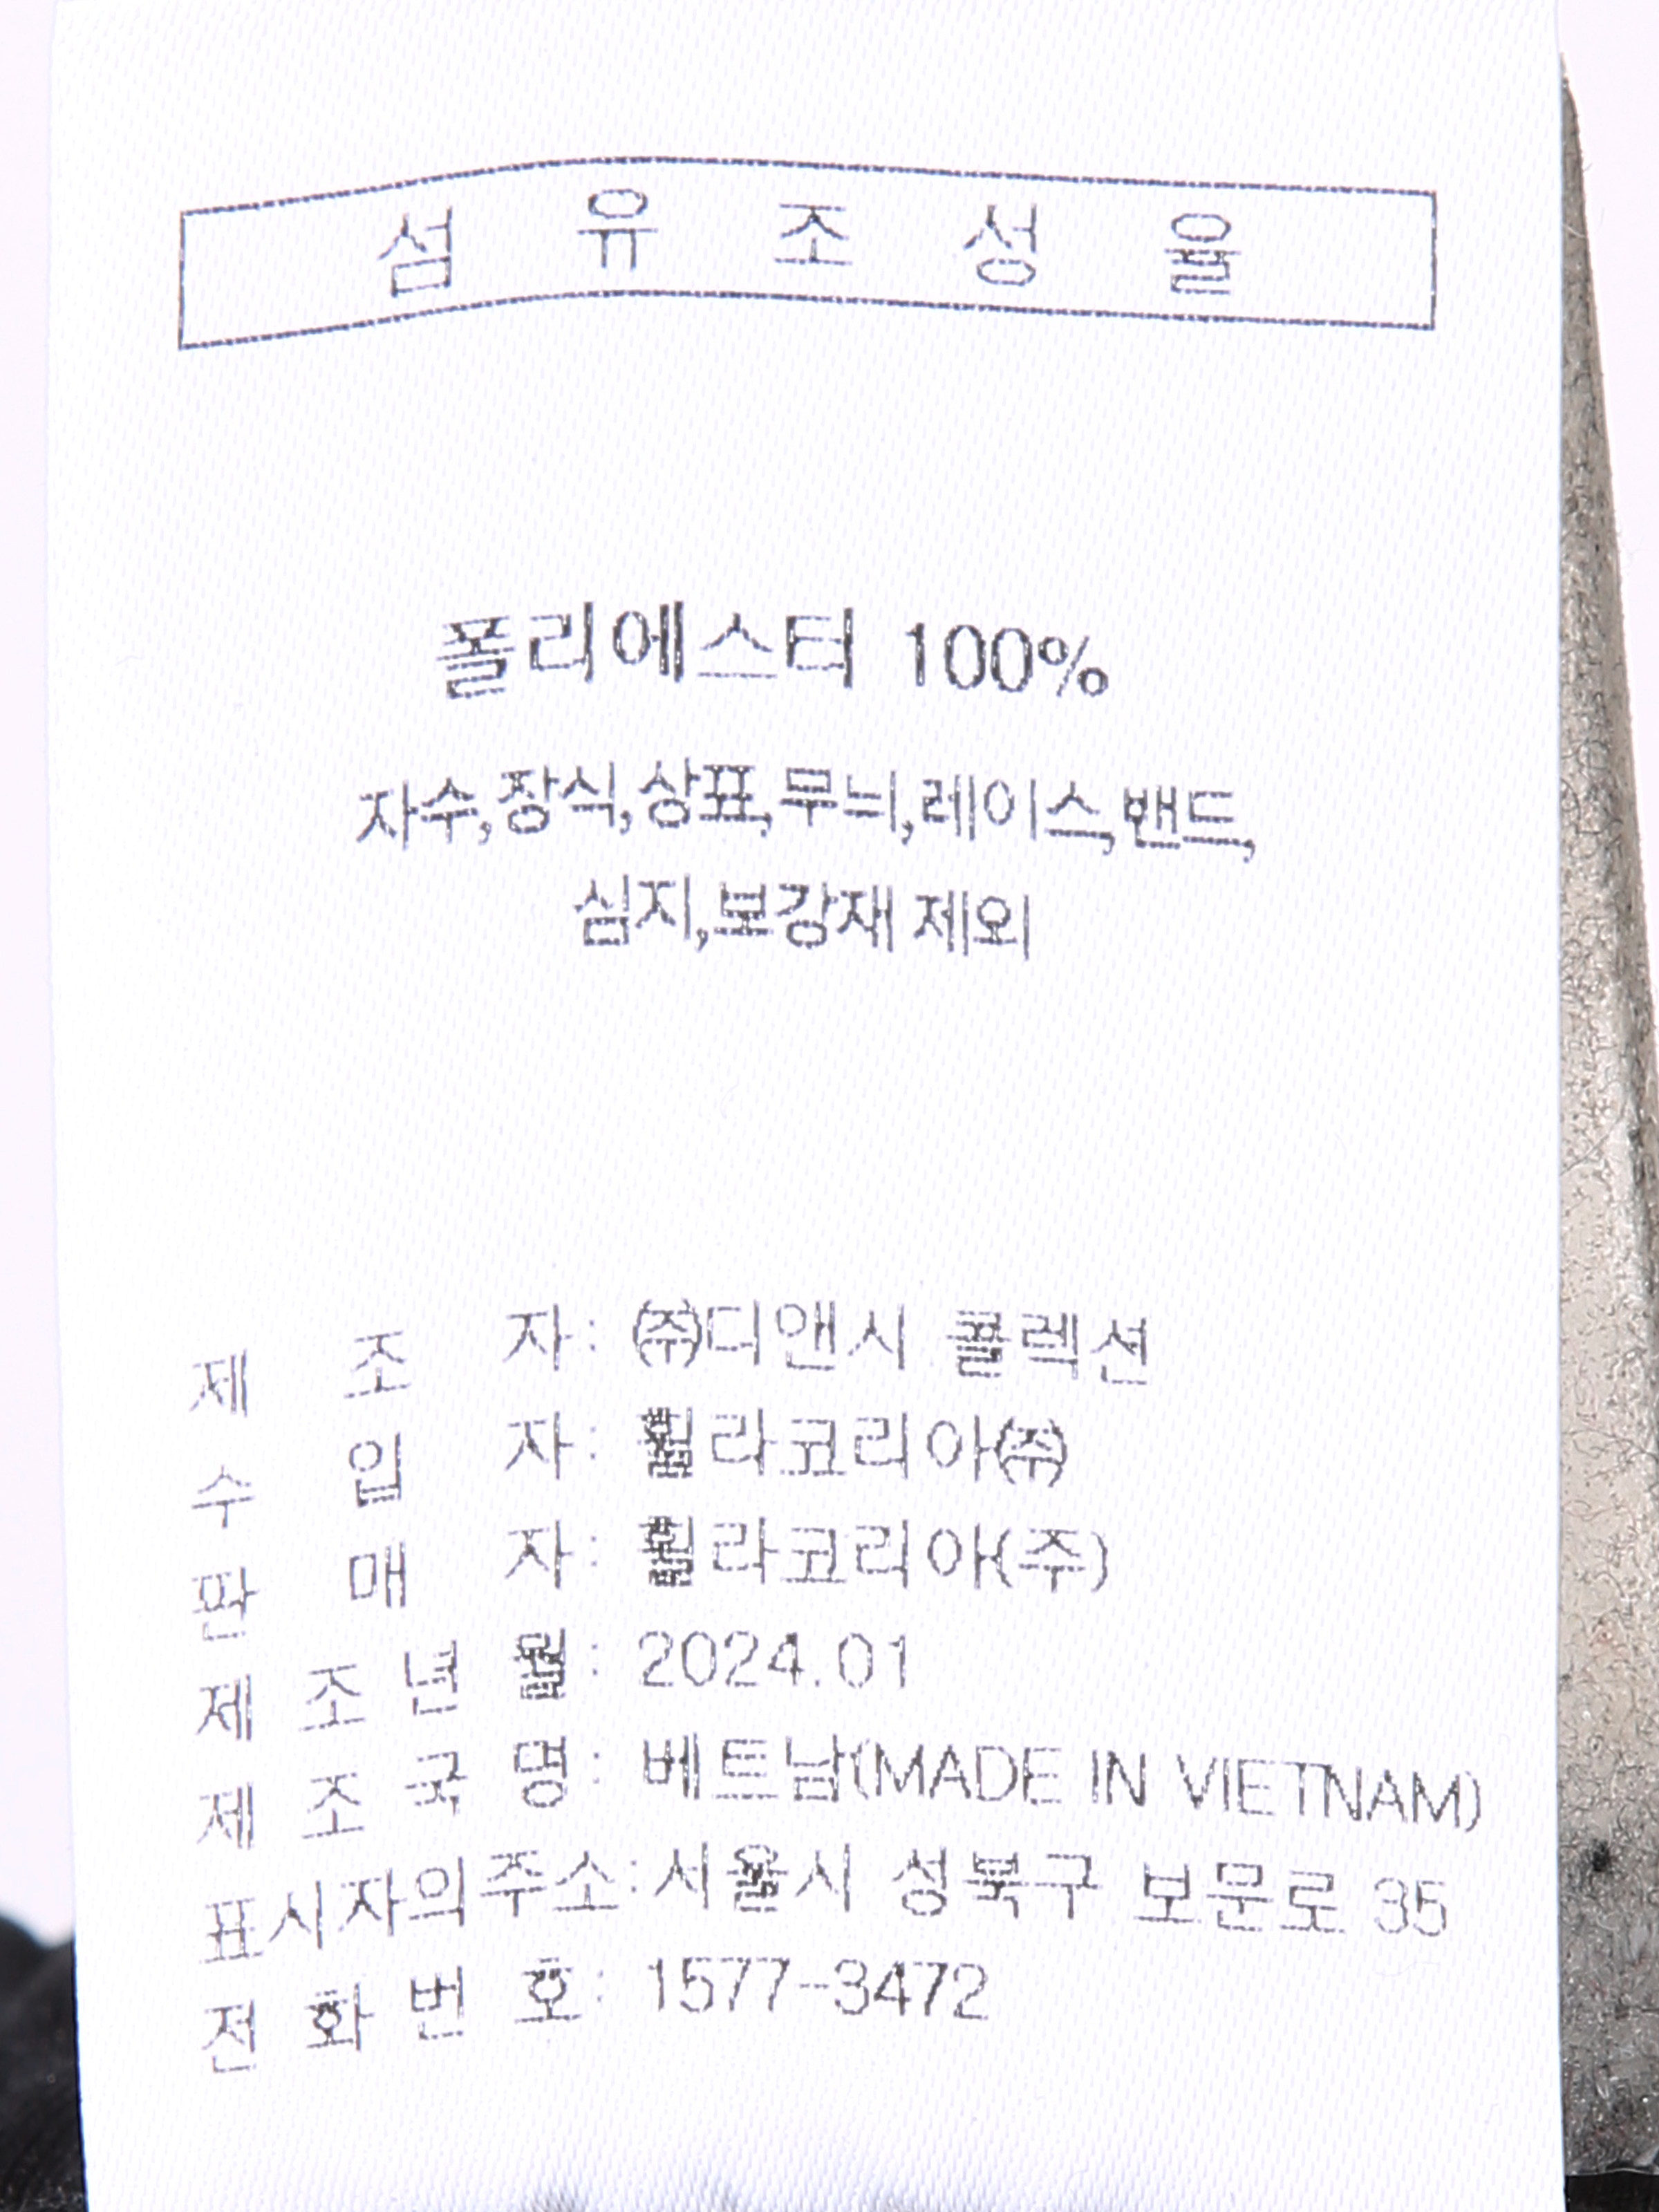 섬 유 조 성 율
폴리에스터 100%
자수,장식,상표,무늬,레이스,밴드,
심지,보강재 제외
제 조 자: ㈜디앤시 콜렉션
수 입 자: 휠라코리아㈜
판 매 자: 휠라코리아(주)
제 조 년 월: 2024.01
제 조 국 명: 베트남(MADE IN VIETNAM)
표시자의주소:서울시 성북구 보문로 35
전 화 번 호: 1577-3472